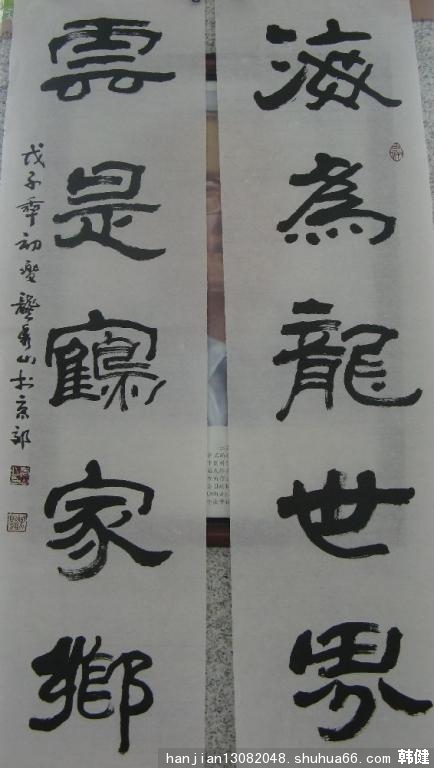 海為龍世界
雲是鶴家鄉
戊子年初夏龔秀山於京郊
hanjian13082048.shuhua66.com 韩健